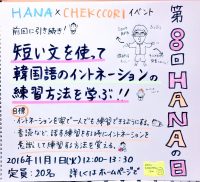 HANA×CHEKCCORI イベント
第8回HANAの日
前回に引き続き!
短い文を使って
韓国語のイントネーションの
練習方法を学ぶ!!
目標
・イントネーションを家で一人でも練習できるようになる。
・音読など、話す練習をする時にイントネーションを
意識して練習する方法を覚える。
2016年11月1日(火)12:00-13:30
定員:20名 詳しくはホームページで